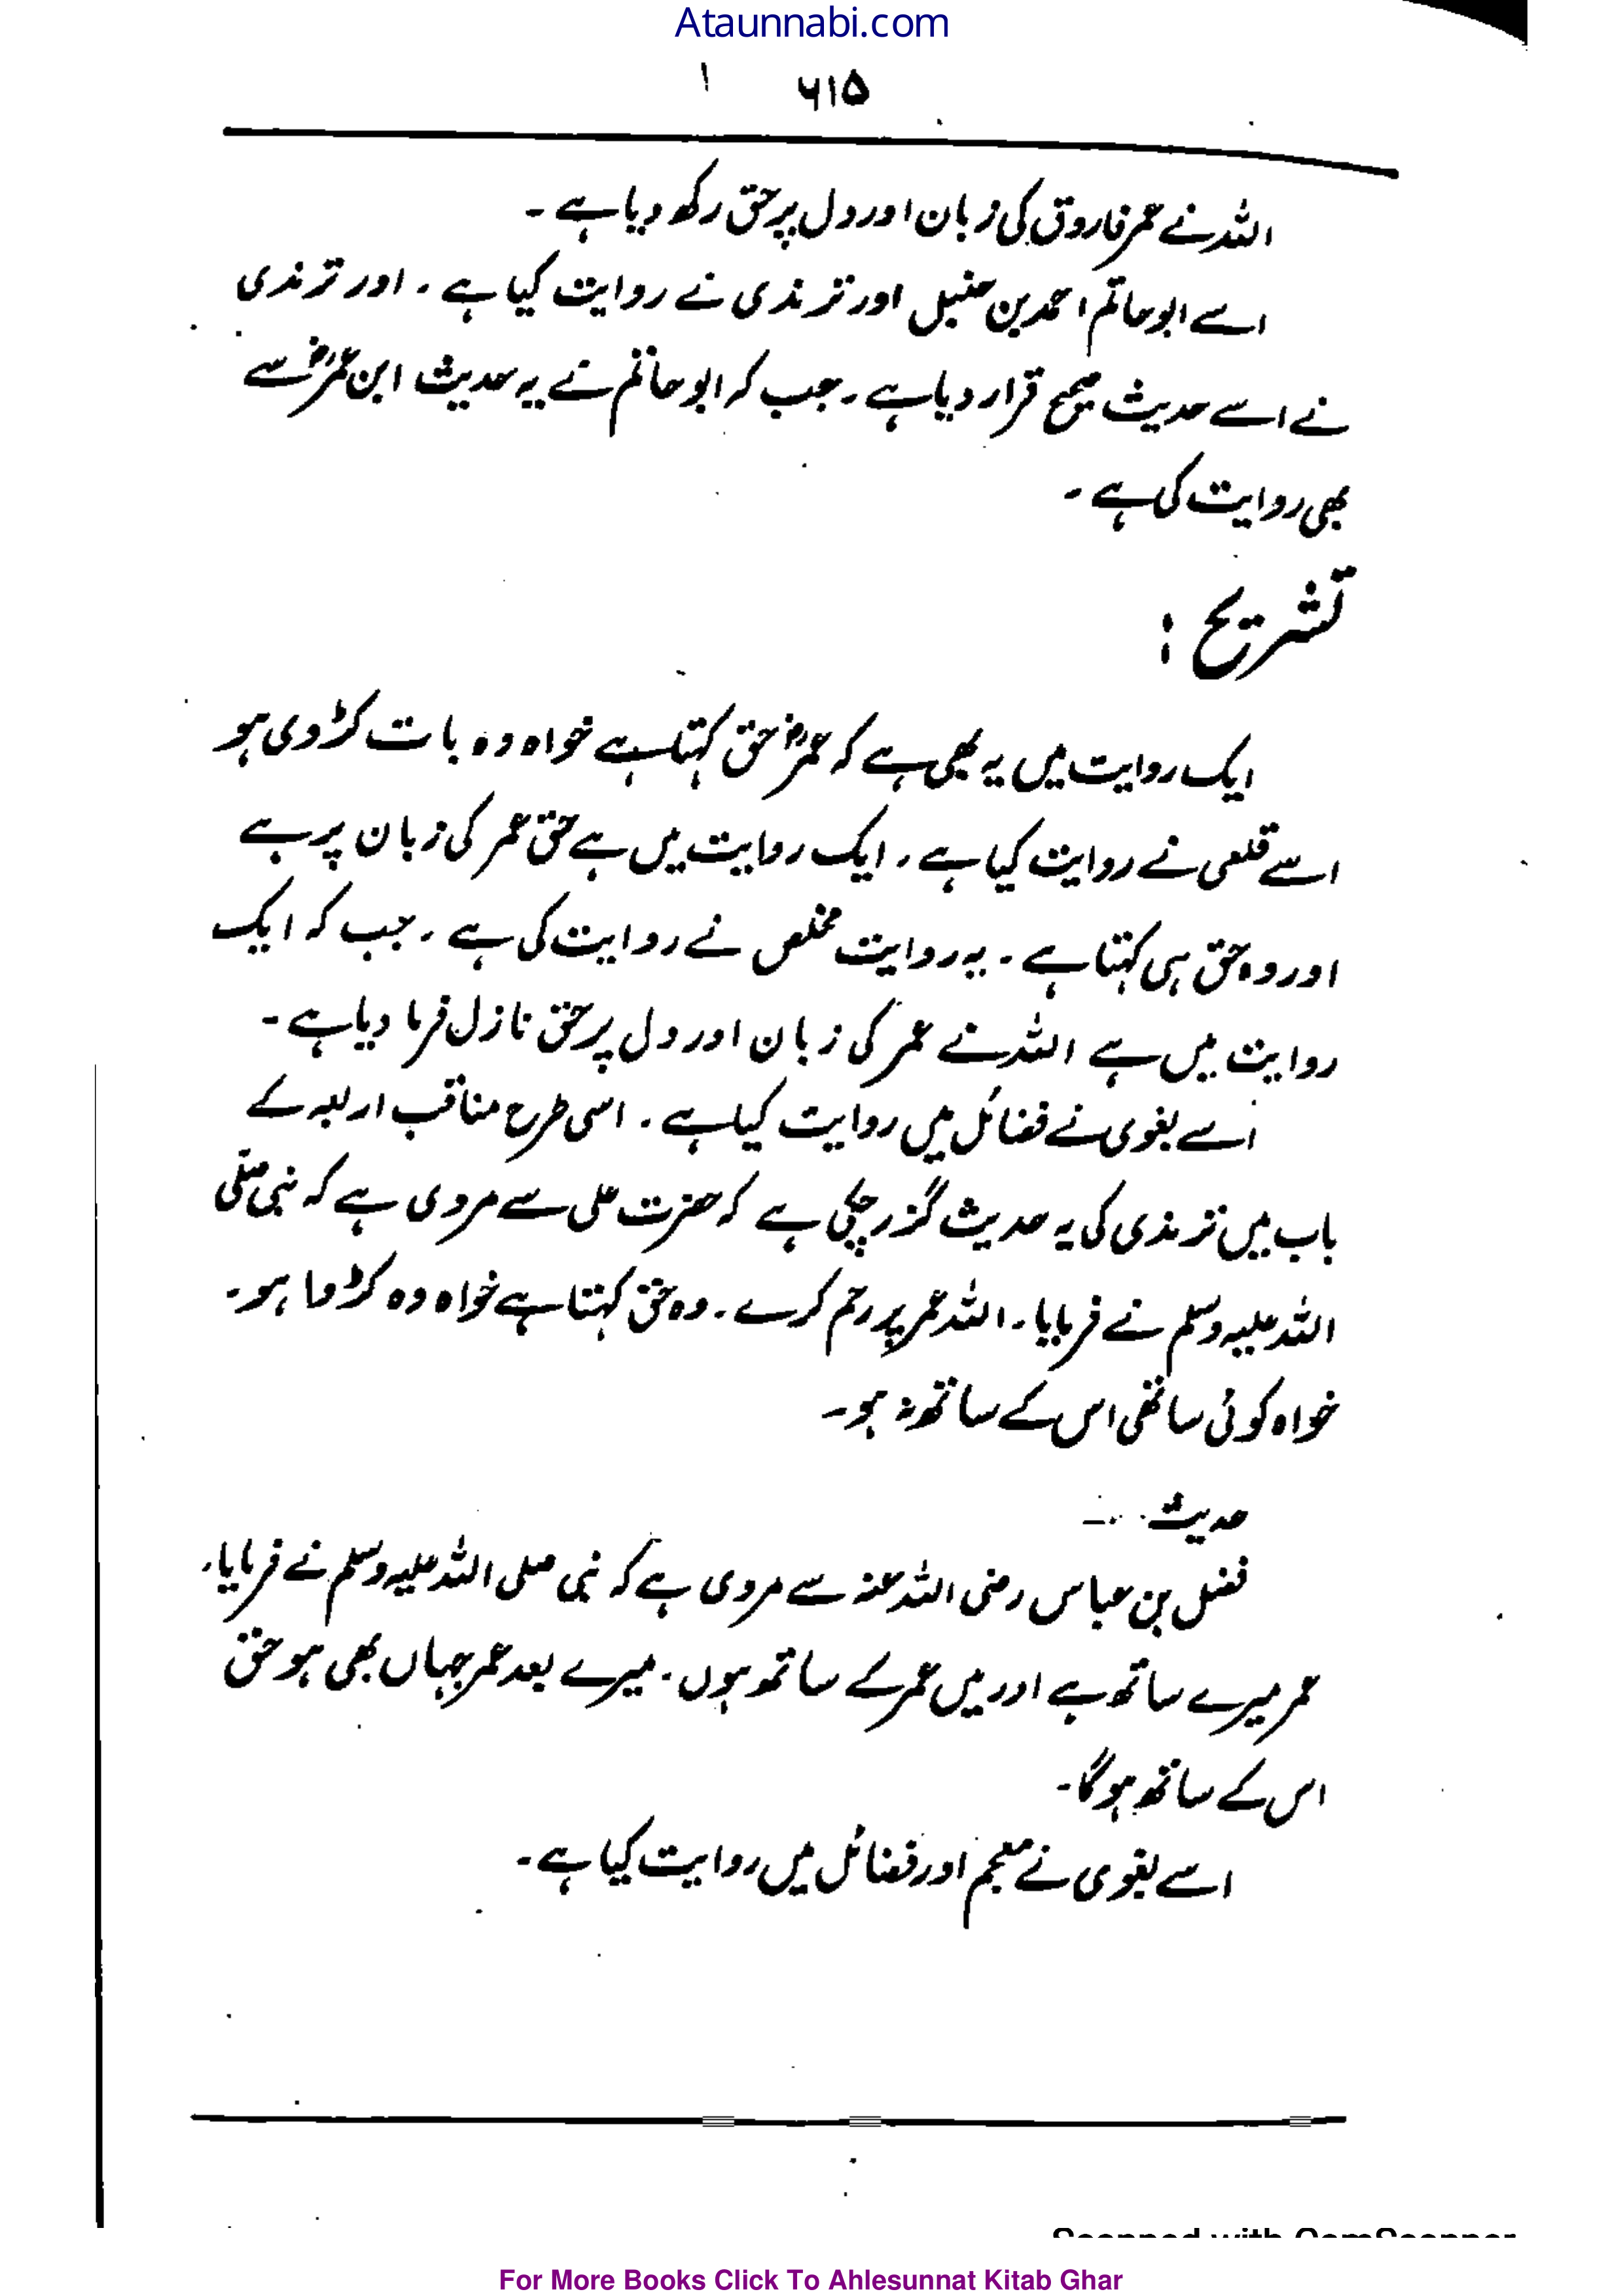 Ataunnabi.com
۶۱۵
اللہ نے عمر فاروق کی زبان اور دل پر حق رکھ دیا ہے ۔
اسے ابو حاتم احمد بن حنبل اور ترمذی نے روایت کیا ہے ۔ اور ترمذی
نے اسے حدیث صحیح قرار دیا ہے ۔ جب کہ ابو حاتم نے یہ حدیث ابن عمرؓ سے
بھی روایت کی ہے ۔
تشریح :
ایک روایت میں یہ بھی ہے کہ عمرؓ حق کہتا ہے خواہ وہ بات کڑوی ہو
اسے قلعی نے روایت کیا ہے ۔ ایک روایت میں ہے حق عمر کی زبان پر ہے
اور وہ حق ہی کہتا ہے ۔ یہ روایت مخلص نے روایت کی ہے ۔ جب کہ ایک
روایت میں ہے اللہ نے عمر کی زبان اور دل پر حق نازل فرما دیا ہے ۔
اسے بغوی نے فضائل میں روایت کیا ہے ۔ اسی طرح مناقب اربعہ کے
باب میں ترمذی کی یہ حدیث گزر چکی ہے کہ حضرت علی سے مروی ہے کہ نبی صلی
اللہ علیہ وسلم نے فرمایا ۔ اللہ عمر پر رحم کرے ۔ وہ حق کہتا ہے خواہ وہ کڑوا ہو ۔
خواہ کوئی ساتھی اس کے ساتھ نہ ہو ۔
حدیث
فضل بن عباس رضی اللہ عنہ سے مروی ہے کہ نبی صلی اللہ علیہ وسلم نے فرمایا ۔
عمر میرے ساتھ ہے اور میں عمر کے ساتھ ہوں ۔ میرے بعد عمر جہاں بھی ہو حق
اس کے ساتھ ہوگا ۔
اسے بغوی نے معجم اور فضائل میں روایت کیا ہے ۔
Scanned with CamScanner
For More Books Click To Ahlesunnat Kitab Ghar